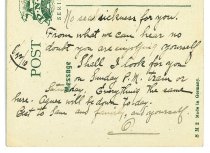 No sea sickness for you.
From what we can hear no
doubt you are enjoying yourself
Shall I look for you
on Sunday P.M. train or
Saturday. Everything the same
here. Agnes will be down today.
to Sam and and yourself.
C
POST
SERIE
Message
Made in Germany.